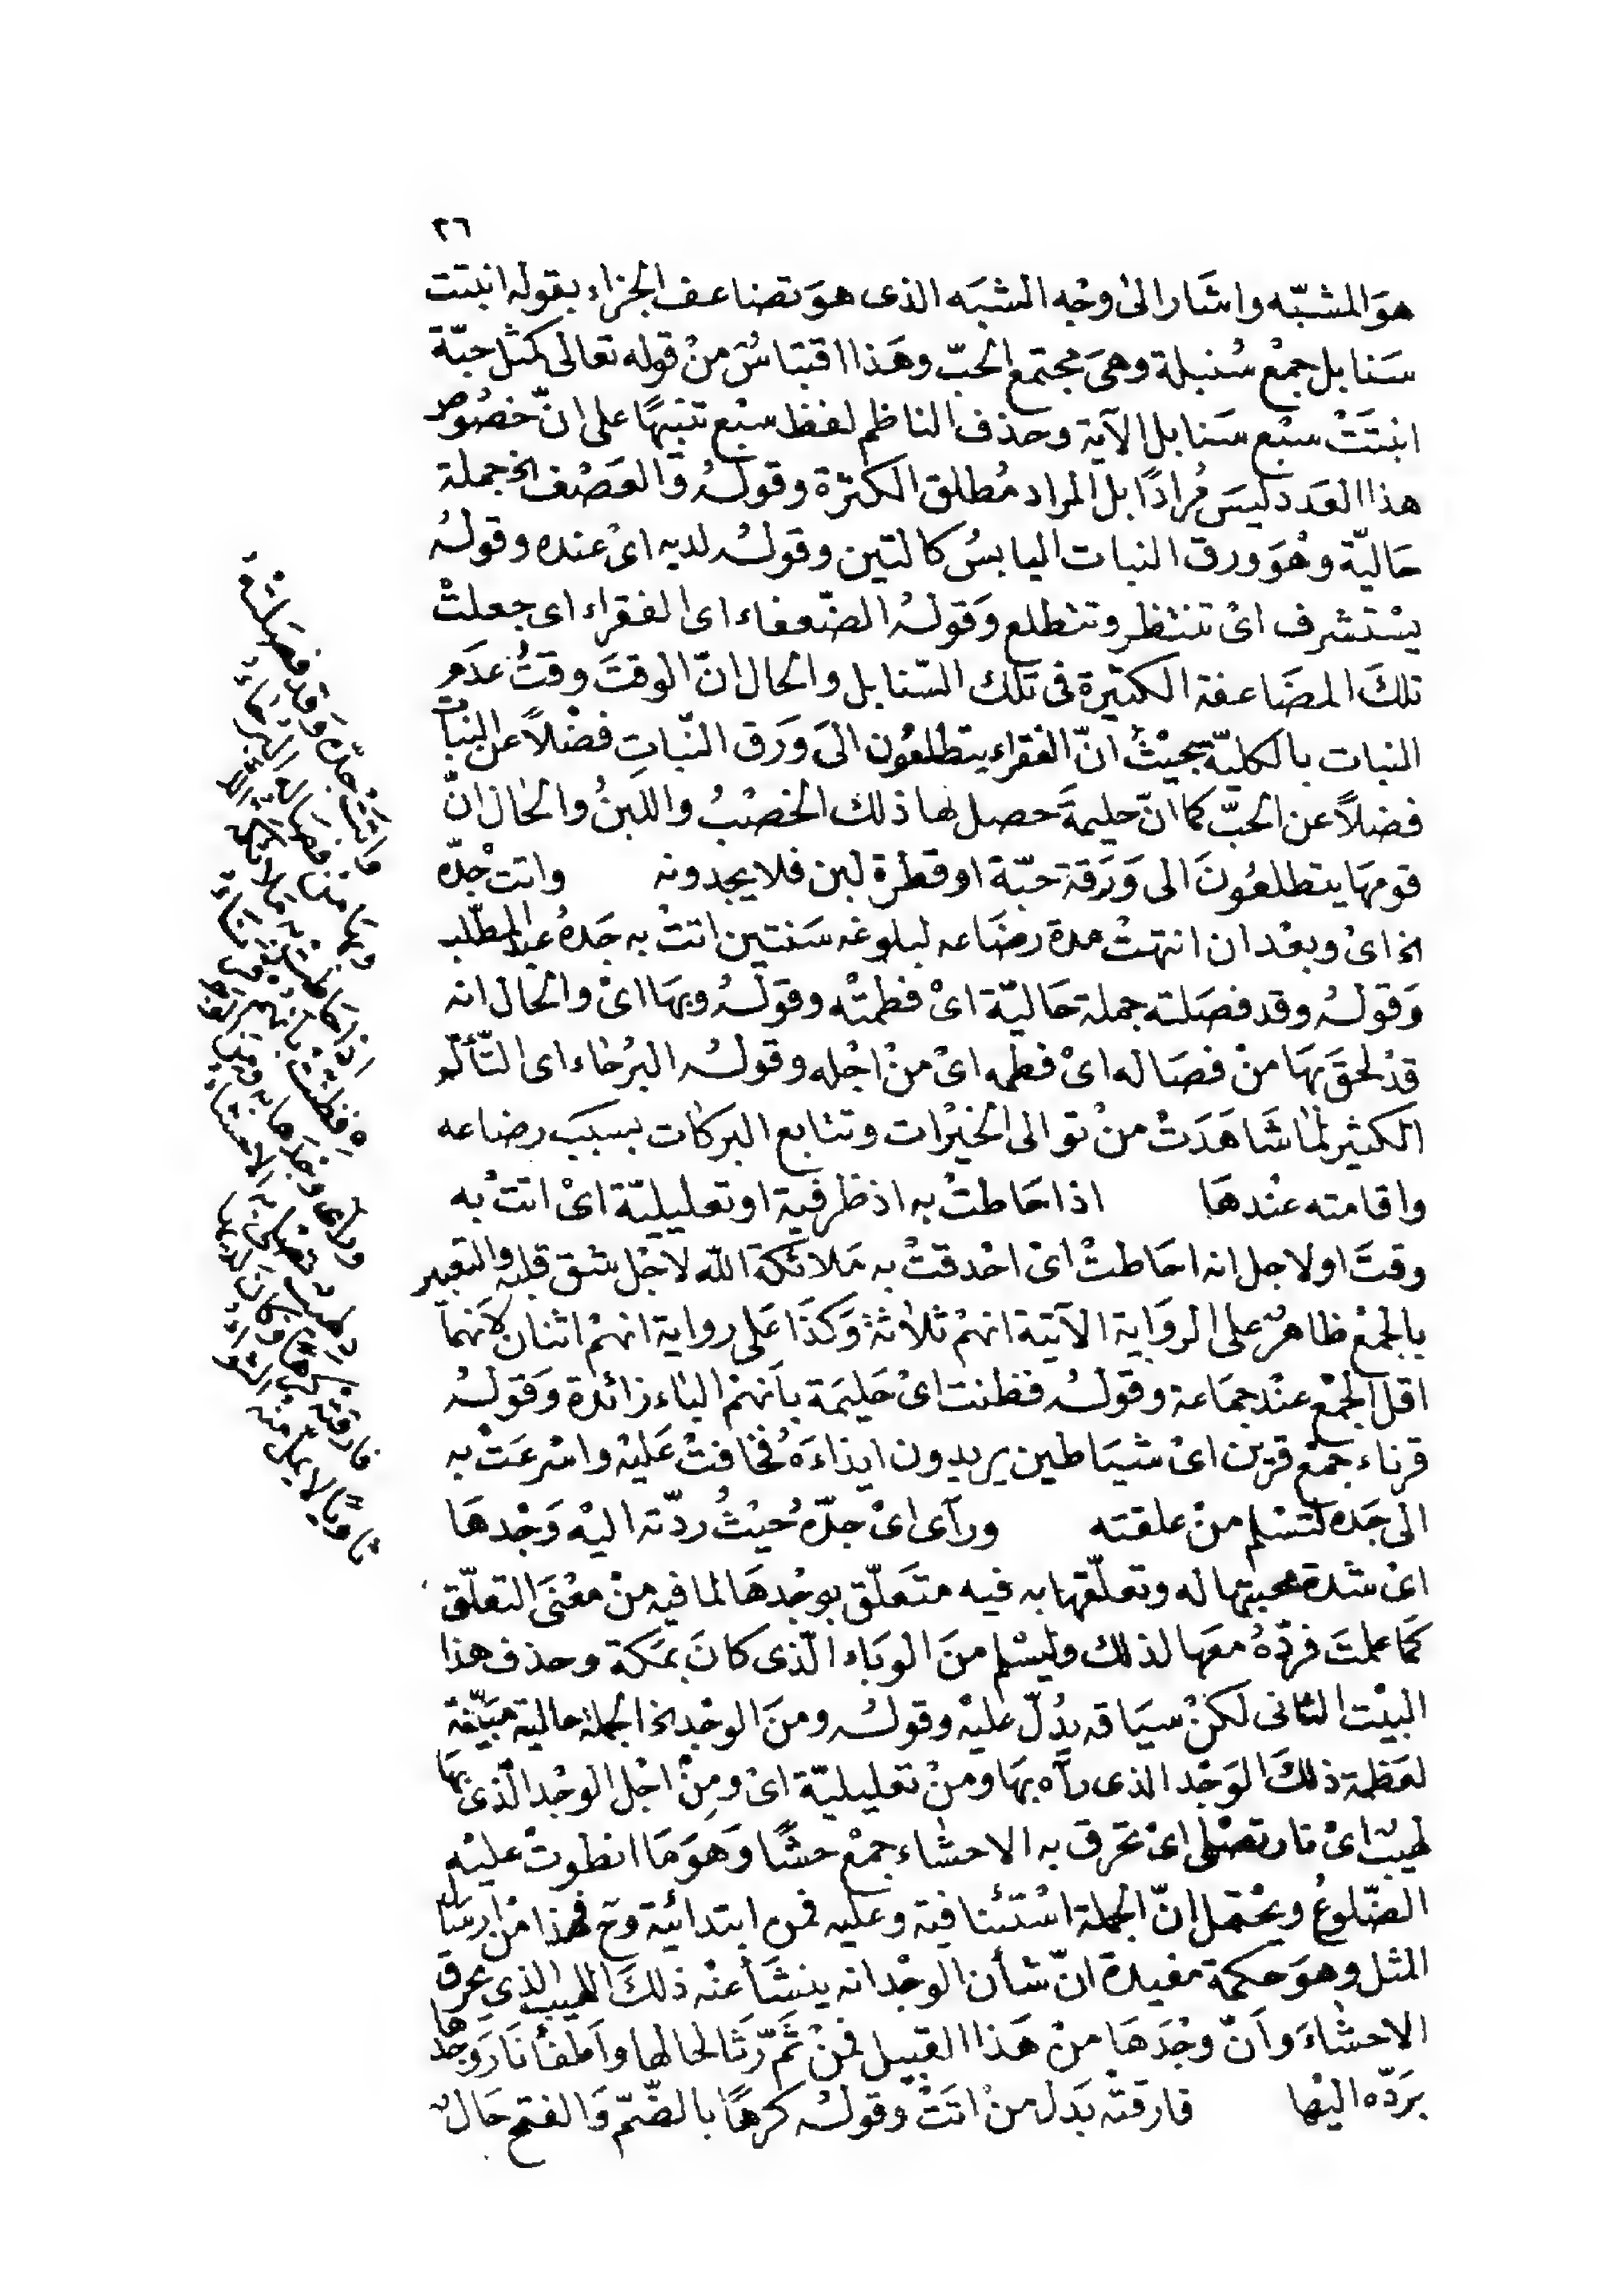 ٢٦
هوَ المشبّه واشَار الىٰ وجْه الشبَه الذى هوَ تضاعف الجزاء بقوله انبتت
سَنابل جمْع سُنبلة وهىَ مجتمع الحبّ وهَذا اقتباسٌ منْ قوله تعالى كمثل حبّة
انبتَتْ سبْع سَنابل الآية وحذف الناظم لفظ سبْع تنبيهًا على انّ خصُوص
هذا العَدد ليسَ مُرادًا بل المراد مُطلق الكثرة وقولهُ وَالعَصْف الخ جملة
حَاليّة وهْوَ ورق النبات اليابسُ كالتين وقولهُ لديه اىْ عنده وقولهُ
يسْتشرف اىْ تنتظر وتتطلع وَقولهُ الضّعفاء اى الفقراء اى جعلتْ
تلكَ المضَاعفة الكثيرة فى تلك السّنابل والحال انّ الوقتَ وقتُ عدَم
النبات بالكليّة بحيْثُ انّ الفقراء يتطلعُون الىَ وَرَق النّباتِ فضْلاً عن النبات
فضلاً عن الحبّ كما انّ حليمةَ حصل لها ذلك الخصْبُ واللبنُ والحَال انّ
قومهَا يتطلعُونَ الى وَرَقة حبّة او قطرة لبن فلا يجدونه واتت جْدّه
الخ اىْ وبعْد ان انتهتْ مدة رضَاعه لبلوغه سَنتين اتتْ به جَدهُ عبد المطّلب
وَقولهُ وقد فصَلته جملة حَاليّة اىْ فطمتْه وقولهُ وبهَا اىْ والحَال انه
قدْ لحقَ بهَا منْ فصَاله اىْ فطمه اىْ منْ اجْله وقولهُ البرُحَاء اى التّألّم
الكثير لمْا شَاهَدَتْ منْ توالى الخيْرات وتتابع البركات بسَببَ رضاعه
واقامته عنْدهَا اذ احَاطتْ به اذ ظرْفية او تعليليّة اىْ اتتْ به
وقتَ او لاجل انه احَاطتْ اىْ احْدقتْ به مَلائكة الله لاجْل شق قلبه والتعبير
بالجمْع ظاهرٌ على الروَاية الآتية انهمْ ثلاثة وَكذَا عَلى رواية انهمْ اثنان لانهما
اقل الجمْع عنْد جمَاعة وقولهُ فظنت اىْ حَليمَة بأنهمْ الباء زائدة وَقولهُ
قرناء جمْع قرْين اىْ شيَاطين يريدون ايذاءَهُ فخافتْ عَليْه واسْرعَتْ به
الى جَده لتسْلم منْ علقته ورآى اىْ جدّهُ حيْثُ ردّته اليْه وَجْدهَا
اىْ شدة محبتها له وتعلّقها به فيه متَعلّق بوجْدهَا لما فيه منْ معْنَى التعلّق
كمَا علمتَ فردّهُ معَها لذلك وليسْلم منَ الوبَاء الّذى كانَ بمَكة وحذف هذا
البيْت الثانى لكنْ سيَاقه يدُلّ عليْه وقولهُ ومنَ الوجْد الخ الجملة حالية مبَيّنة
لعَظمة ذلكَ الوَجْد الذى رآه بهَا ومنْ تعليليّة اىْ ومِنْ اجْل الوجْد الّذى بهَا
لهيبٌ اىْ نار تصْلى اىْ تحرق به الاحشاء جمْع حشًا وَهوَ مَا انطوتْ عليْه
الضّلوعُ ويحْتمل انّ الجملة اسْتئنافية وعليه فمن ابتدائية وح فهذا منْ ارسَال
المثل وهوَ حكمة مفيدة انّ شأن الوجْد انه ينشَأ عنْه ذلكَ اللهيب الذى يحرق
الاحشَاءَ وأنّ وجْدَهَا منْ هَذا القبيل فمنْ ثَمّ رَثَا لحالها وأطفأ نَار وَجْدهَا
برَدّه اليْها فارقتْه بَدل منْ اتَتْ وقولهُ كرهًا بالضّمّ وَالفتح حَالٌ
وَاتَتْ جدّه وَقد فصَلتْهُ
وبهَا منْ فصَاله البُرَحَاءُ
اذ احَاطتْ به مَلائكة الله
فظنّتْ بأنهُمْ قرَناءُ
ورأى وجْدهَا به ومنَ الوجْد
لهيبٌ تصْلى به الاحشَاءُ
فارقتْه كرهًا وكانَ لديْها
ثاويًا لا يملّ منْه الثّواءُ